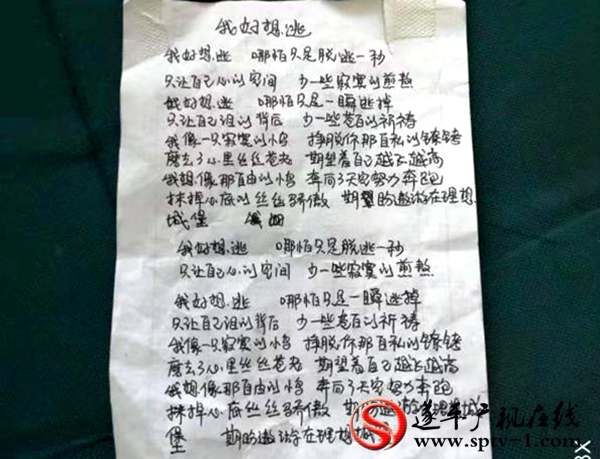 我好想逃
我好想逃 哪怕只是脱逃一秒
只让自己心的空间 少一些寂寞的煎熬
我好想逃 哪怕只是一瞬逃掉
只让自己泪的背后 少一些苍白的祈祷
我像一只寂寞的小鸟 挣脱你那自私的镣铐
磨去了心里丝丝苍老 期望着自己越飞越高
我想像那自由的小鸟 奔向了天空努力奔跑
抹掉心底的丝丝骄傲 期望盼遨游在理想
城堡
我好想逃 哪怕只是脱逃一秒
只让自己心的空间 少一些寂寞的煎熬
我好想逃 哪怕只是一瞬逃掉
只让自己泪的背后 少一些苍白的祈祷
我像一只寂寞的小鸟 挣脱你那自私的镣铐
磨去了心里丝丝苍老 期望着自己越飞越高
我想像那自由的小鸟 奔向了天空努力奔跑
抹掉心底丝丝骄傲 期盼遨游在理想城
堡 期盼遨游在理想城
遂平广视在线
www.sptv-1.com